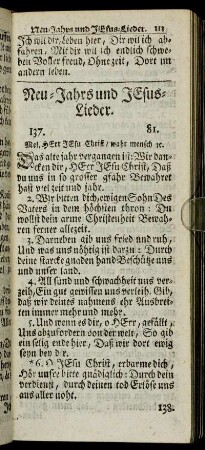 Neu-Jahrs und JEsus-Lieder. 111
Ich wil dir, leben hier, Dir wil ich ab-
fahren, Mit dir wil ich endlich schwe-
ben Voller freud, Ohne zeit, Dort im
andern leben.
Neu-Jahrs und JEsus-
Lieder.
137. 81.
Mel. HErr JEsu Christ/ wahr mensch ꝛc.
Das alte jahr vergangen ist: Wir dan-
cken dir, HErr JEsu Christ, Daß
du uns in so grosser gfahr Bewahret
hast viel zeit und jahr.
2. Wir bitten dich, ewigen Sohn Des
Vaters in dem höchsten thron: Du
wollst dein arme Christenheit Bewah-
ren ferner allezeit.
3. Darneben gib uns fried und ruh,
Und was uns nöhtig ist darzu: Durch
deine starcke gnaden hand Beschütz uns
und unser land.
4. All sünd und schwachheit uns ver-
zeih, Ein gut gewissen uns verleih. Gib,
daß wir deines nahmens ehr Ausbrei-
ten immer mehr und mehr.
5. Und wenn es dir, o HErr, gefällt,
Uns abzufordern von der welt, So gib
ein selig ende hier, Daß wir dort ewig
seyn bey dir.
*6. O JEsu Christ, erbarme dich,
Hör unsre bitte gnädiglich: Durch dein
verdienst, durch deinen tod Erlös uns
aus aller noht.
138.